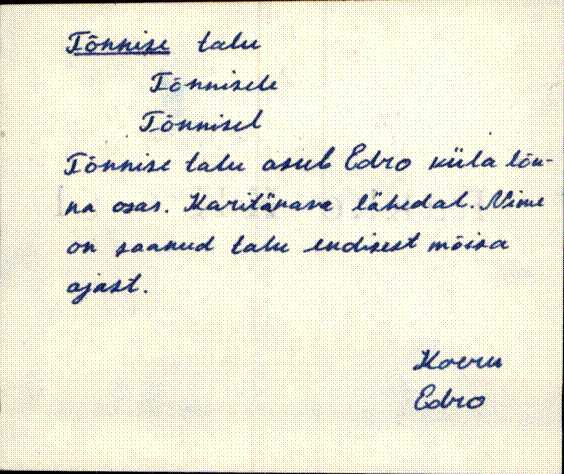 Tõnnise talu
Tõnnisele
Tõnnisel
Tõnnise talu asub Edro küla lõu-
na osas. Karitänava lähedal. Nime
on saanud talu endisest mõisa
ajast.
Koeru
Edro